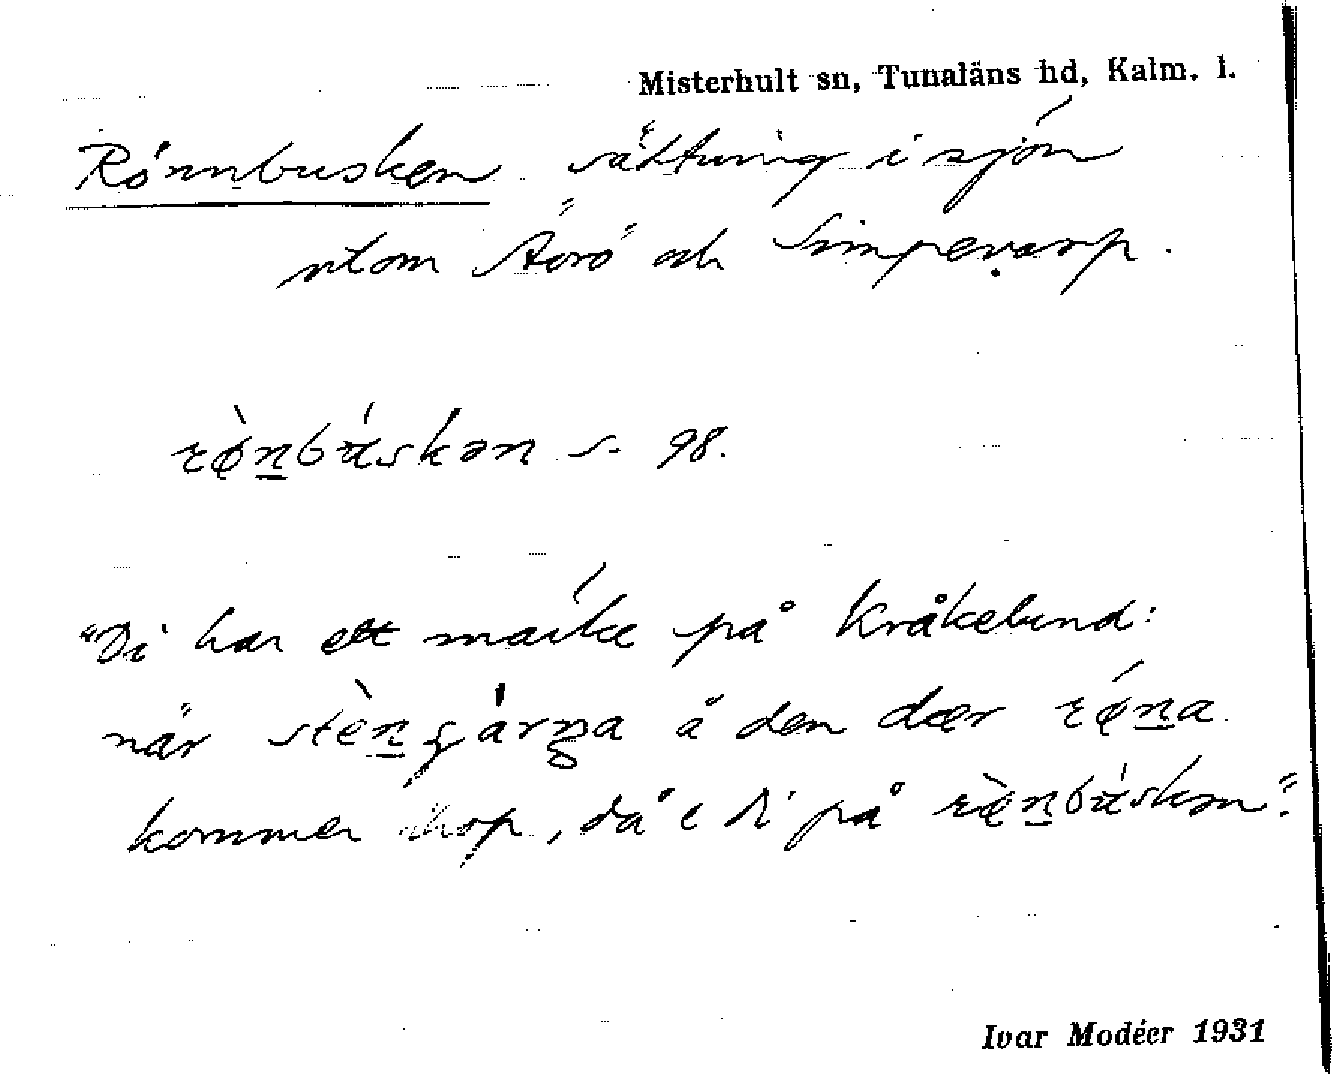 Misterhult sn, Tunaläns hd, Kalm. l.
Rönnbusken sättning i sjön
utom Ävrö och Simpevarp.
rø̀nbúskən s. 98.
"Di har ett märke på Kråkelund:
när stèngárna å den dær rǿna
kommer ihop, då e di på rø̀nbúskən".
Ivar Modéer 1931